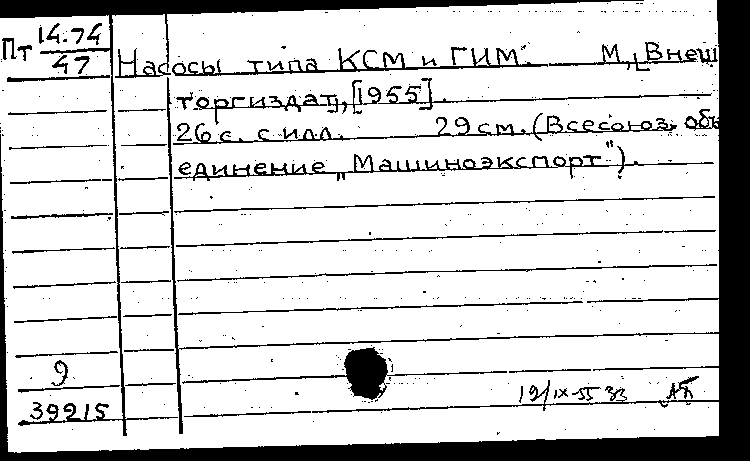 Пт 14.74
47
Насосы типа КСМ и ГИМ. М., [Внеш
торгиздат], [1955].
26 с. с илл. 29 см. (Всесоюз. объ
единение „Машиноэкспорт").
9
39215
19/IX-55